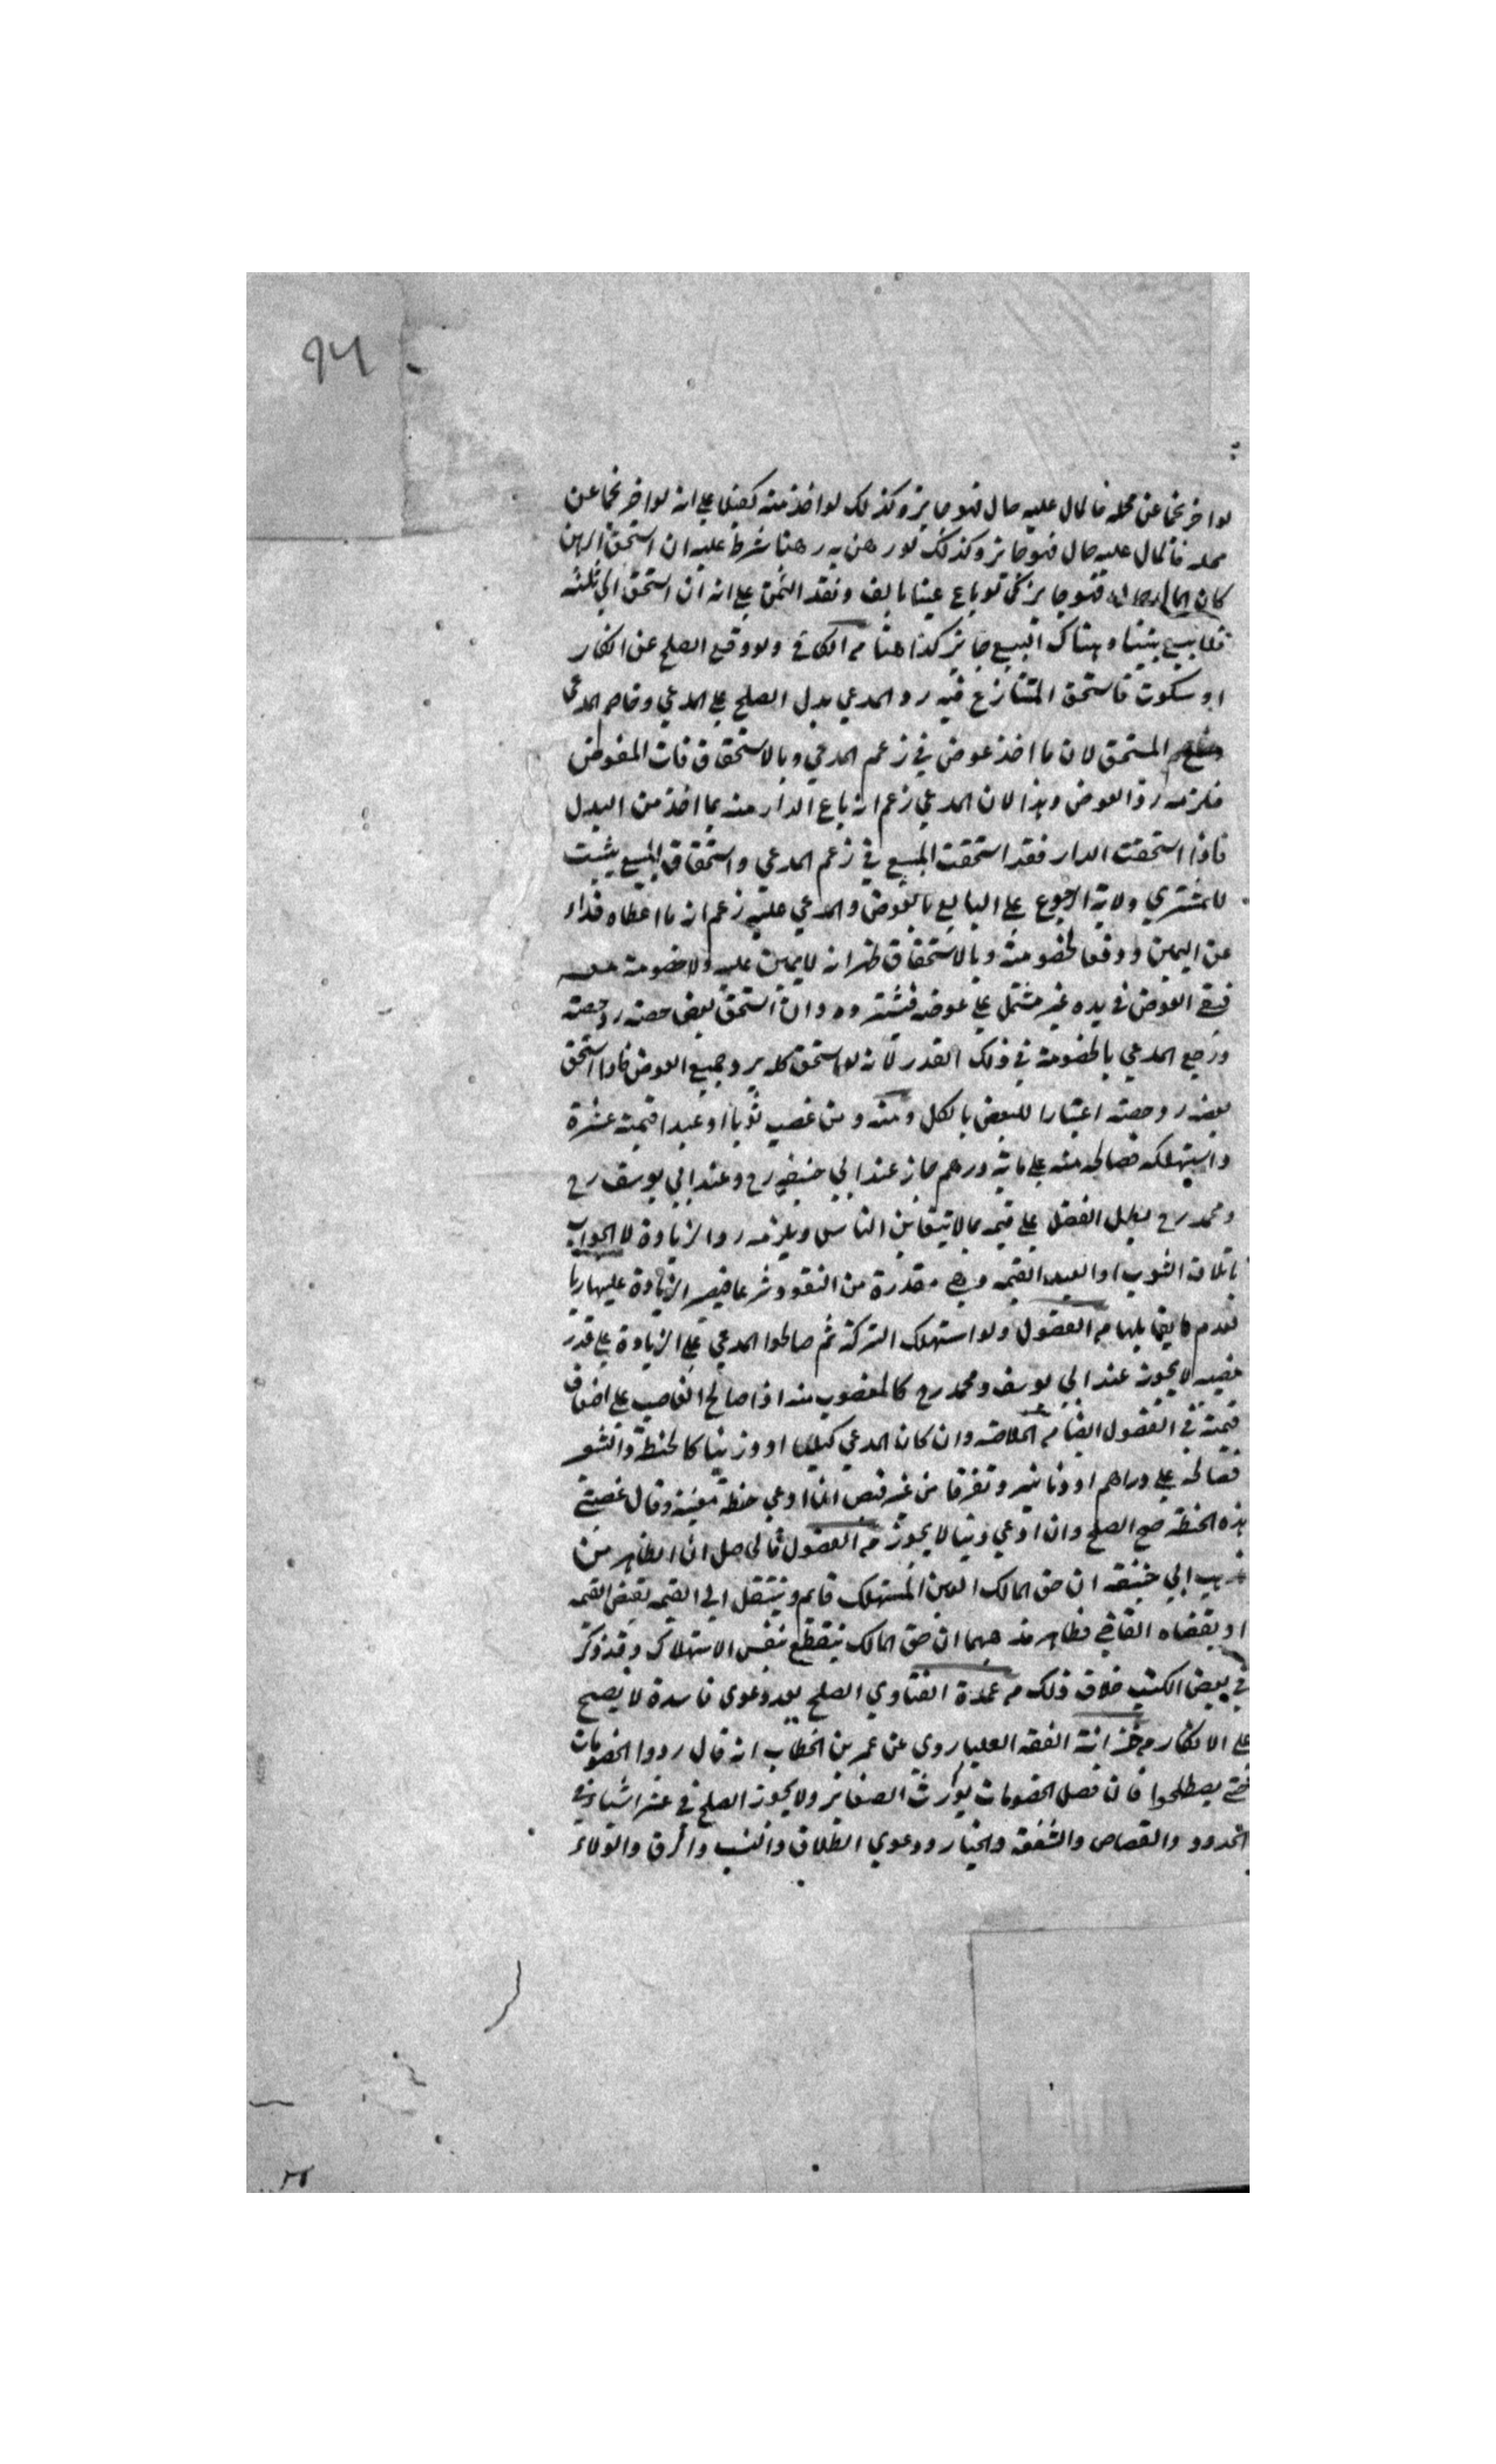 ٩٤
لو اخر نجما عن محله فالمال عليه حال فهو جايز وكذلك لو اخذ منه كفيلا علي انه لو اخر نجما عن
محله فالمال عليه حال فهو جايز وكذلك لو رهن به رهنا شرط عليه ان استحق الرهن
كان المال حالا فهو جايز كمن لو باع عينا بالف ونقد الثمن علي انه ان استحق الي ثلثه
فلا بيع بيننا وهناك البيع جايز كذا هنا م الكافي ولو وقع الصلح عن انكار
او سكوت فاستحق المتنازع فيه رد المدعي بدل الصلح علي المدعي وخاصم المدعي
المستحق لان ما اخذ عوض في زعم المدعي وبالاستحقاق فات المعوض
فلزمه رد العوض وهذا لان المدعي زعم انه باع الدار منه بما اخذ من البدل
فاذا استحقت الدار فقد استحقت المبيع في زعم المدعي واستحقاق المبيع يثبت
للمشتري ولاية الرجوع علي البايع بالعوض والمدعي عليه زعم ان ما اعطاه فداء
عن اليمين ودفعا لخصومته وبالاستحقاق ظهر انه لا يمين عليه ولا خصومة معه
فبقي العوض في يده غير مشتمل علي عوضه فيسترده وان استحق بعض حصته رد حصته
ورجع المدعي بالخصومة في ذلك القدر لانه لو استحق كله يرد جميع العوض فاذا استحق
بعضه رد حصته اعتبارا للبعض بالكل ومنه ومن غصب ثوبا او عبدا قيمته عشرة
واستهلكه فصالحه منه علي ماية درهم جاز عند ابي حنيفه رح وعند ابي يوسف رح
ومحمد رح يبطل الفضل علي قيمه بما لا يتغابن الناس ويلزمه رد الزيادة لان الواجب
باتلاف الثوب او العبد القيمه وهي مقدرة من النقود شرعا فيصير الزيادة عليها ربا
لعدم ما يقابلها م الفصول ولو استهلك التركة ثم صالحوا المدعي علي الزيادة علي قدر
نصيبه لا يجوز عند ابي يوسف ومحمد رح كالمغصوب منه اذا صالح الغاصب علي اضعاف
قيمته في الفصول ايضا م الخلاصه وان كان المدعي كيليا او وزنيا كالحنطة والشعير
فصالحه علي دراهم او دنانير وتفرقا من غير قبض ان ادعي حنطة معينة وقال غصبتني
هذه الحنطة صح الصلح وان ادعي دينا لا يجوز م الفصول فالحاصل ان الظاهر من
مذهب ابي حنيفه ان حق المالك العين المستهلك قايم وينتقل الي القيمه بقبض القيمه
او بقضاء القاضي فظاهر مذهبهما ان حق المالك ينقطع بنفس الاستهلاك وقد ذكر
في بعض الكتب خلاف ذلك م عمدة الفتاوي الصلح بعد دعوي فاسدة لا يصح
علي الانكار م خزانة الفقه العليا روي عن عمر بن الخطاب انه قال ردوا الخصومات
حتي يصطلحوا فان فصل الخصومات يورث الضغاين ولا يجوز الصلح في عشر اشياء في
الحدود والقصاص والشفعة والخيار ودعوي الطلاق والنسب والرق والولاء